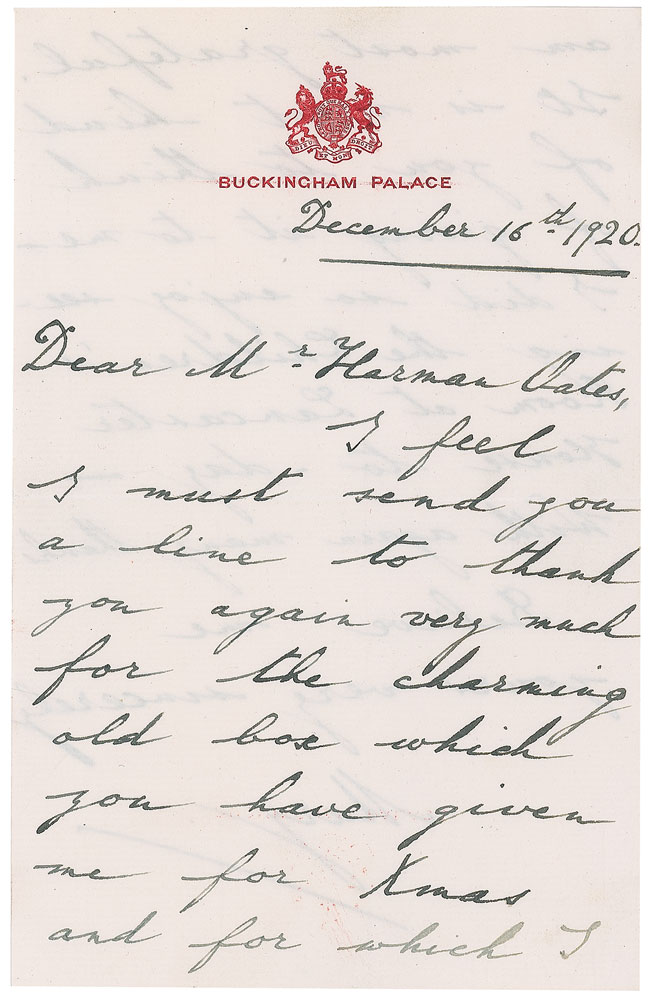 DIEU ET MON DROIT
BUCKINGHAM PALACE
December 16th 1920.
Dear Mr Harman Oates,
I feel
I must send you
a line to thank
you again very much
for the charming
old box which
you have given
me for Xmas
and for which I